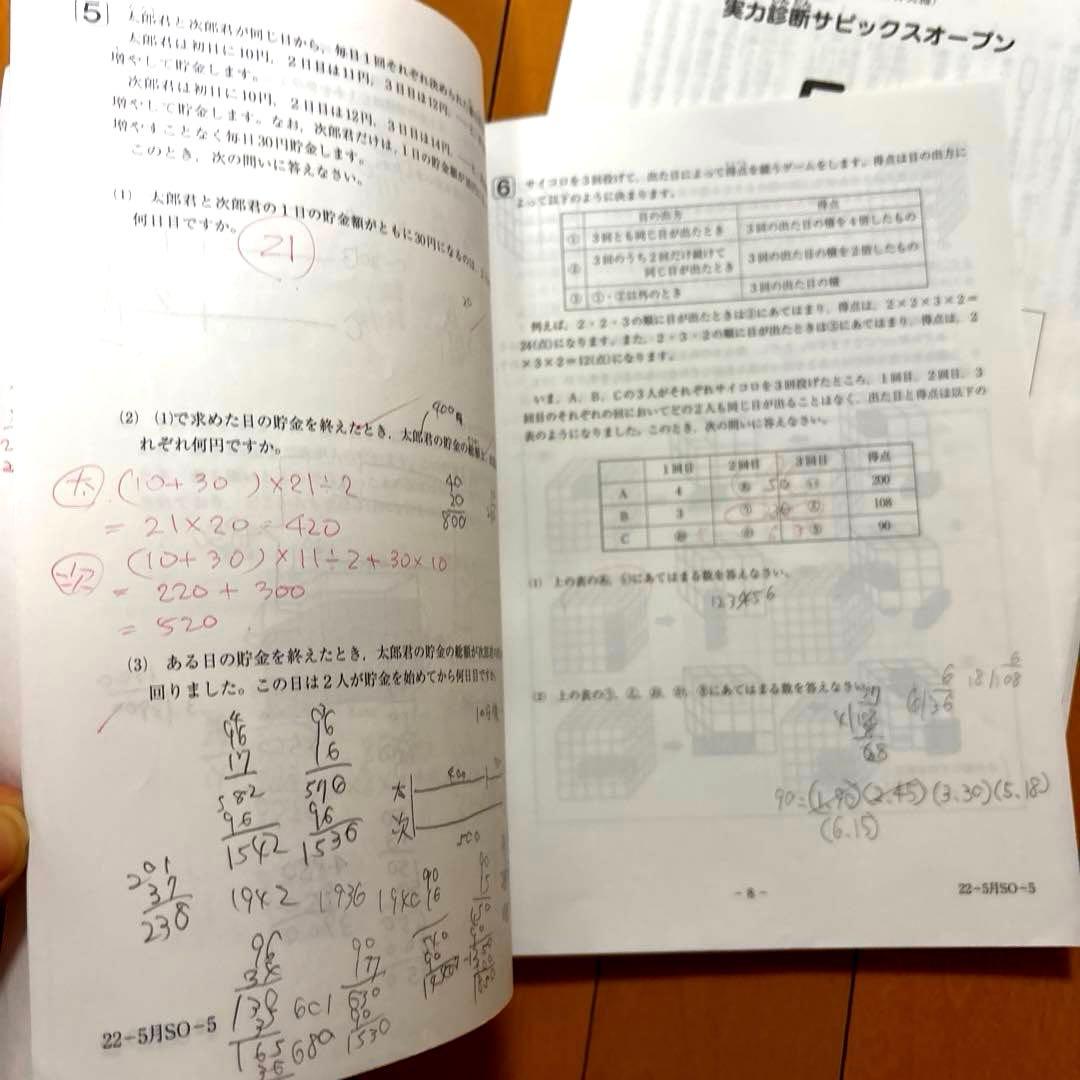 実力診断サピックスオープン
5 太郎君と次郎君が同じ日から，毎日1回それぞれ決められた
太郎君は初日に10円，2日目は11円，3日目は12円，
増やして貯金します。
次郎君は初日に10円，2日目は12円，3日目は14円，
増やして貯金します。なお，次郎君だけは，1日の貯金額が
増やすことなく毎日30円貯金します。
このとき，次の問いに答えなさい。
(1) 太郎君と次郎君の1日の貯金額がともに30円になるのは，
何日目ですか。
21
20
(2) (1)で求めた日の貯金を終えたとき，太郎君の貯金の総額と，
れぞれ何円ですか。
900円
40
20
800
太 (10+30)×21÷2
= 21×20 = 420
次 (10+30)×11÷2+30×10
= 220+300
= 520
(3) ある日の貯金を終えたとき，太郎君の貯金の総額が次郎君の
回りました。この日は2人が貯金を始めてから何日目ですか
96
17
582
96
1542
96
16
576
96
1536
太 400
次 500
201
37
238
1942 1936 1940
90
16
96
34
601
680
90
17
630
90
1530
22−5月SO−5
6 サイコロを3回投げて，出た目によって得点を競うゲームをします。得点は目の出方に
よって以下のように決まります。
目の出方 得点
① 3回とも同じ目が出たとき 3回の出た目の積を4倍したもの
② 3回のうち2回だけ続けて同じ目が出たとき 3回の出た目の積を2倍したもの
③ ①・②以外のとき 3回の出た目の積
例えば，2・2・3の順に目が出たときは②にあてはまり，得点は，2×2×3×2＝
24(点)になります。また，2・3・2の順に目が出たときは③にあてはまり，得点は，2
×3×2＝12(点)になります。
いま，A，B，Cの3人がそれぞれサイコロを3回投げたところ，1回目，2回目，3
回目のそれぞれの回においてどの2人も同じ目が出ることはなく，出た目と得点は以下の
表のようになりました。このとき，次の問いに答えなさい。
1回目 2回目 3回目 得点
A 4 あ 50 い 200
B 3 36 108
C 90
(1) 上の表のあ，いにあてはまる数を答えなさい。
123456
(2) 上の表の にあてはまる数を答えなさい。
27
68
6
6/36
6
18/108
90=(1.90)(2.45)(3.30)(5.18)
(6.15)
−8−
22−5月SO−5